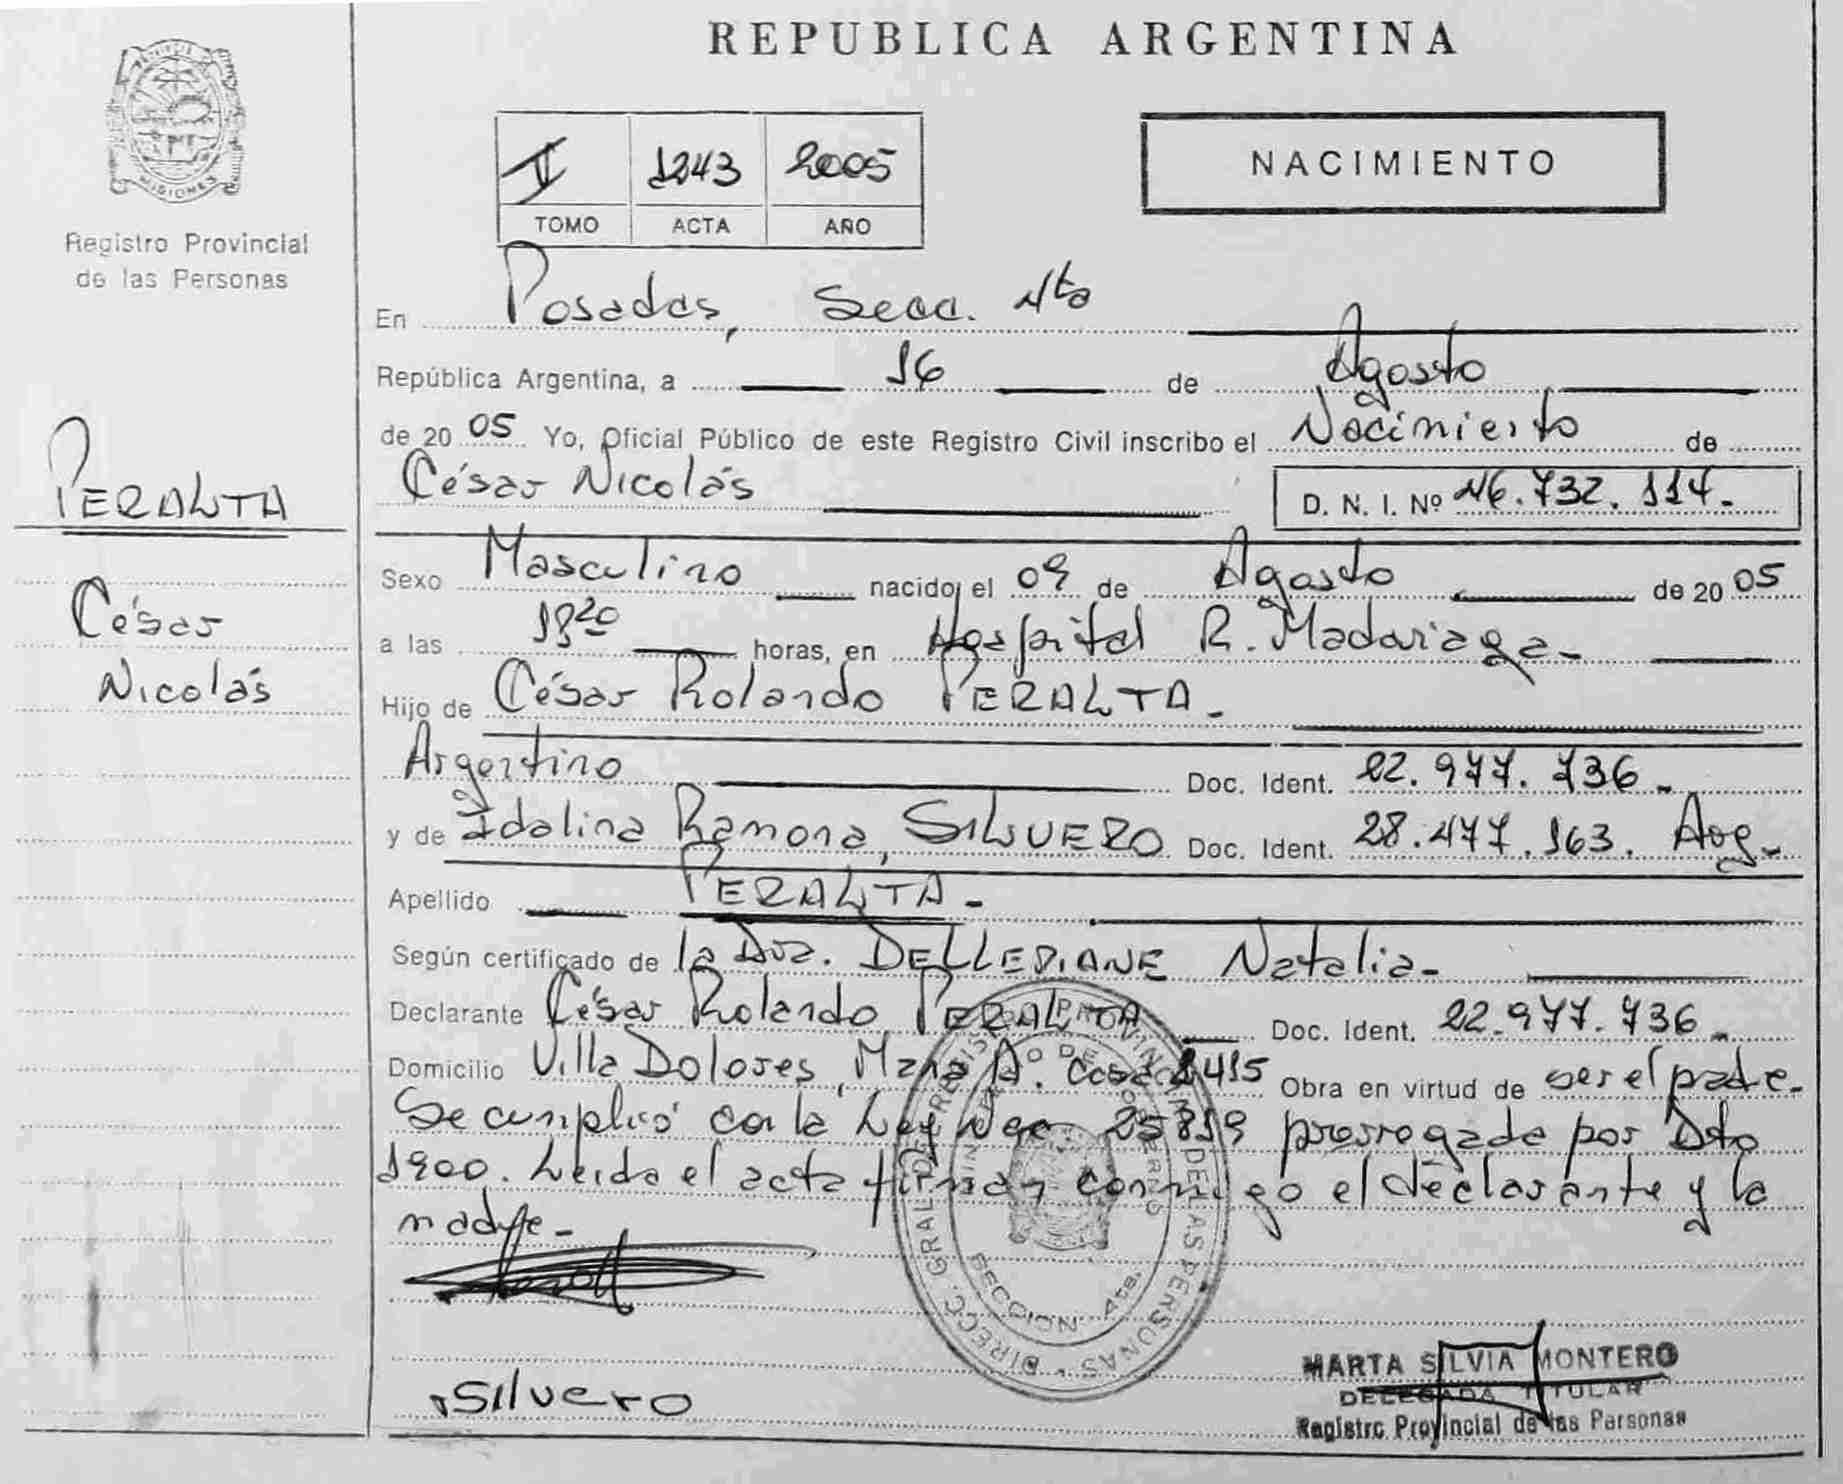 REPUBLICA ARGENTINA
MISIONES
Registro Provincial
de las Personas
II 1243 2005
TOMO ACTA AÑO
NACIMIENTO
PERALTA
César
Nicolás
En Posadas, Secc. 4ta
República Argentina, a 16 de Agosto
de 2005 Yo, Oficial Público de este Registro Civil inscribo el Nacimiento de
César Nicolás D. N. I. Nº 46.732.114.-
Sexo Masculino nacido el 09 de Agosto de 2005
a las 1820 horas, en Hospital R. Madariaga.-
Hijo de César Rolando PERALTA.-
Argentino Doc. Ident. 22.977.736.-
y de Idalina Ramona, SILVERO Doc. Ident. 28.477.163. Arg.-
Apellido PERALTA.-
Según certificado de la Dra. DELLEPIANE Natalia.-
Declarante César Rolando PERALTA Doc. Ident. 22.977.736.-
Domicilio Villa Dolores, Mana A. Casa 2415 Obra en virtud de ser el padre.-
Se cumplió con la Ley Nac 25819 prorrogada por Dto
1900. Leida el acta firman conmigo el declarante y la
madre.-
DIRECC. GRAL DE REGISTRO PROVINCIAL DE LAS PERSONAS
MINISTERIO DE GOBIERNO
SECCION 4ta.
Silvero
MARTA SILVIA MONTERO
DELEGADA TITULAR
Registro Provincial de las Personas